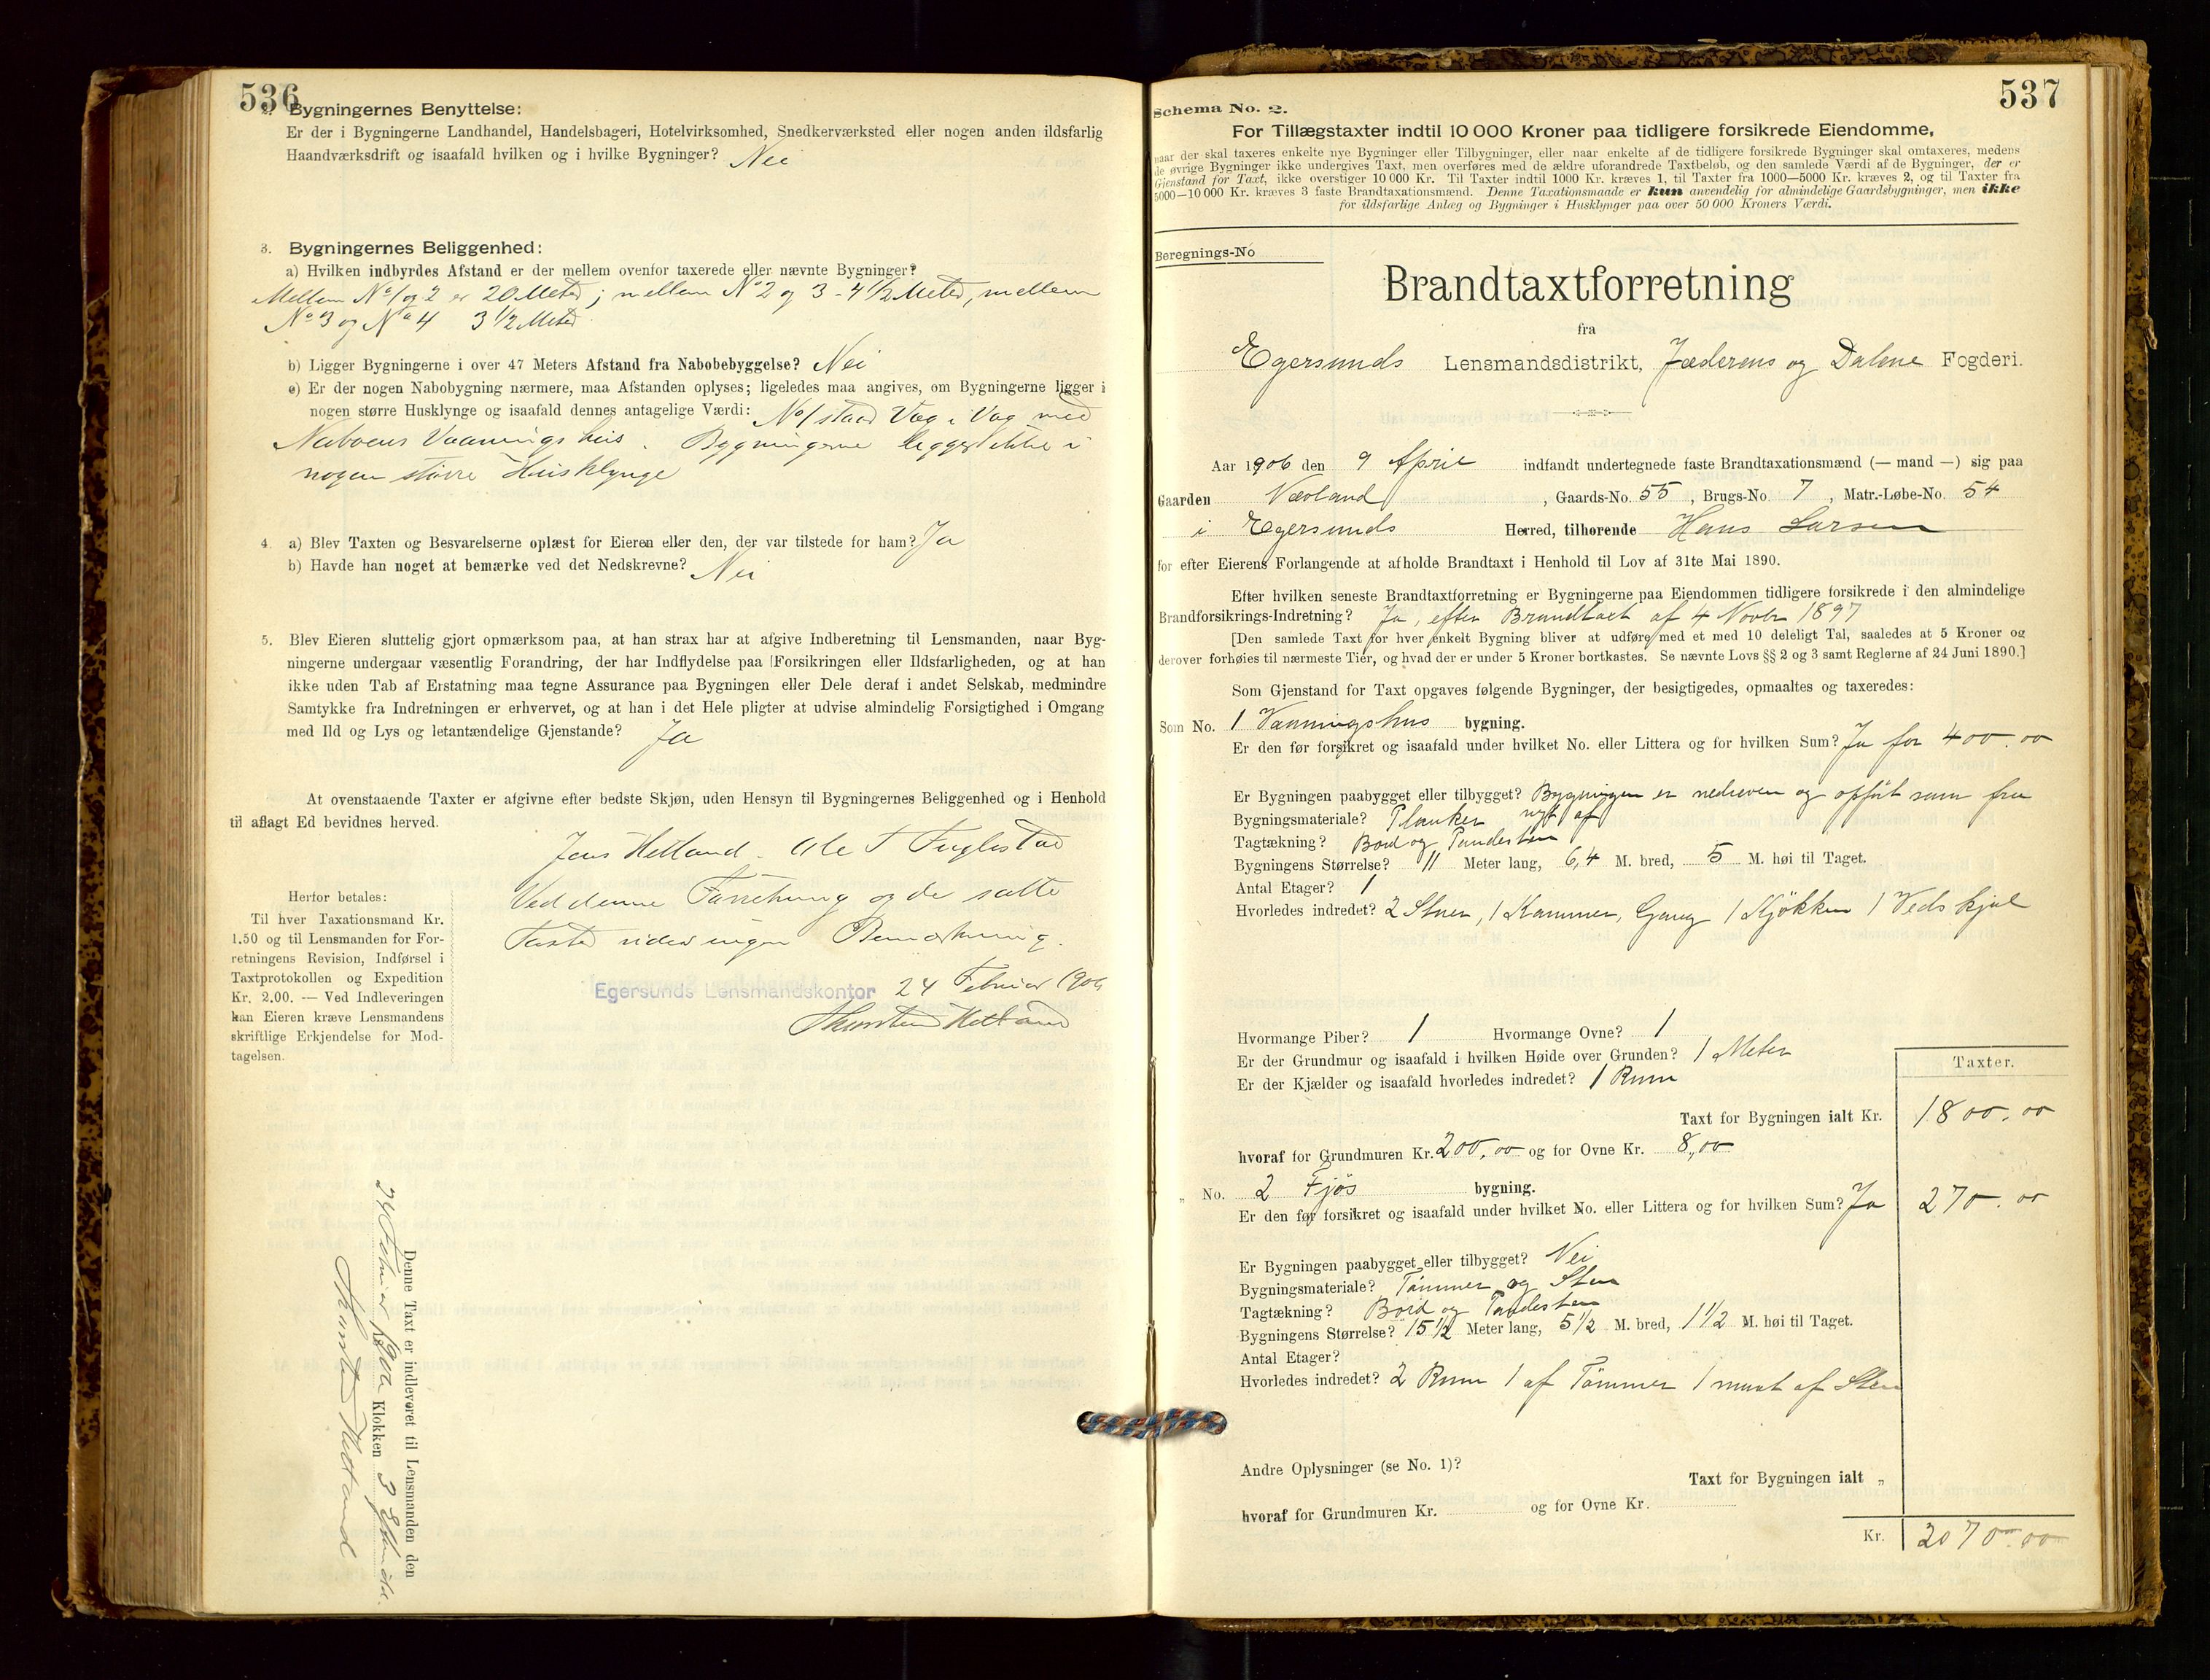 536
2. Bygningernes Benyttelse:
Er der i Bygningerne Landhandel, Handelsbageri, Hotelvirksomhed, Snedkerværksted eller nogen anden ildsfarlig
Haandværksdrift og isaafald hvilken og i hvilke Bygninger? Nei
3. Bygningernes Beliggenhed:
a) Hvilken indbyrdes Afstand er der mellem ovenfor taxerede eller nævnte Bygninger?
Mellem No 1 og 2 er 20 Meter; mellem No 2 og 3 - 4 1/2 Meter, mellem
No 3 og No 4 3 1/2 Meter
b) Ligger Bygningerne i over 47 Meters Afstand fra Nabobebyggelse? Nei
c) Er der nogen Nabobygning nærmere, maa Afstanden oplyses; ligeledes maa angives, om Bygningerne ligger i
nogen større Husklynge og isaafald dennes antagelige Værdi: No 1 staar Væg i Væg med
Naboens Vaaningshus. Bygningerne ligger ikke i
nogen større Husklynge
4. a) Blev Taxten og Besvarelserne oplæst for Eieren eller den, der var tilstede for ham? Ja
b) Havde han noget at bemærke ved det Nedskrevne? Nei
5. Blev Eieren sluttelig gjort opmærksom paa, at han strax har at afgive Indberetning til Lensmanden, naar Byg-
ningerne undergaar væsentlig Forandring, der har Indflydelse paa Forsikringen eller Ildsfarligheden, og at han
ikke uden Tab af Erstatning maa tegne Assurance paa Bygningen eller Dele deraf i andet Selskab, medmindre
Samtykke fra Indretningen er erhvervet, og at han i det Hele pligter at udvise almindelig Forsigtighed i Omgang
med Ild og Lys og letantændelige Gjenstande? Ja
At ovenstaaende Taxter er afgivne efter bedste Skjøn, uden Hensyn til Bygningernes Beliggenhed og i Henhold
til aflagt Ed bevidnes herved.
Jens Hetland. Ole T Fuglestad
Ved denne Forretning og de satte
Taxter vides ingen Bemærkning.
Egersunds Lensmandskontor 24 Februar 1906
Thorsten Hetland
Herfor betales:
Til hver Taxationsmand Kr.
1.50 og til Lensmanden for For-
retningens Revision, Indførsel i
Taxtprotokollen og Expedition
Kr. 2.00. — Ved Indleveringen
kan Eieren kræve Lensmandens
skriftlige Erkjendelse for Mod-
tagelsen.
Denne Taxt er indleveret til Lensmanden den
24 Februar 1906 Klokken 3 Eftermidd.
Thorsten Hetland
537
Schema No. 2.
For Tillægstaxter indtil 10 000 Kroner paa tidligere forsikrede Eiendomme,
naar der skal taxeres enkelte nye Bygninger eller Tilbygninger, eller naar enkelte af de tidligere forsikrede Bygninger skal omtaxeres, medens
de øvrige Bygninger ikke undergives Taxt, men overføres med de ældre uforandrede Taxtbeløb, og den samlede Værdi af de Bygninger, der er
Gjenstand for Taxt, ikke overstiger 10 000 Kr. Til Taxter indtil 1000 Kr. kræves 1, til Taxter fra 1000—5000 Kr. kræves 2, og til Taxter fra
5000—10 000 Kr. kræves 3 faste Brandtaxationsmænd. Denne Taxationsmaade er kun anvendelig for almindelige Gaardsbygninger, men ikke
for ildsfarlige Anlæg og Bygninger i Husklynger paa over 50 000 Kroners Værdi.
Beregnings-No
Brandtaxtforretning
fra
Egersunds Lensmandsdistrikt, Jæderens og Dalene Fogderi.
Aar 1906 den 9 April indfandt undertegnede faste Brandtaxationsmænd (— mand —) sig paa
Gaarden Nævland, Gaards-No. 55, Brugs-No. 7, Matr.-Løbe-No. 54
i Egersunds Herred, tilhørende Hans Larsen
for efter Eierens Forlangende at afholde Brandtaxt i Henhold til Lov af 31te Mai 1890.
Efter hvilken seneste Brandtaxtforretning er Bygningerne paa Eiendommen tidligere forsikrede i den almindelige
Brandforsikrings-Indretning? Ja, efter Brandtaxt af 4 Novbr 1897
[Den samlede Taxt for hver enkelt Bygning bliver at udføre med et med 10 deleligt Tal, saaledes at 5 Kroner og
derover forhøies til nærmeste Tier, og hvad der er under 5 Kroner bortkastes. Se nævnte Lovs §§ 2 og 3 samt Reglerne af 24 Juni 1890.]
Som Gjenstand for Taxt opgaves følgende Bygninger, der besigtigedes, opmaaltes og taxeredes:
Som No. 1 Vaaningshus bygning.
Er den før forsikret og isaafald under hvilket No. eller Littera og for hvilken Sum? Ja for 400.00
Er Bygningen paabygget eller tilbygget? Bygningen er nedreven og opført som fra
nyt af
Bygningsmateriale? Planker
Tagtækning? Bord og Tandesten
Bygningens Størrelse? 11 Meter lang, 6,4 M. bred, 5 M. høi til Taget.
Antal Etager? 1
Hvorledes indredet? 2 Stuer, 1 Kammer, Gang 1 Kjøkken 1 Vedskjul
Hvormange Piber? 1 Hvormange Ovne? 1
Er der Grundmur og isaafald i hvilken Høide over Grunden? 1 Meter
Er der Kjælder og isaafald hvorledes indredet? 1 Rum
Taxter.
Taxt for Bygningen ialt Kr. 1800.00
hvoraf for Grundmuren Kr. 200,00 og for Ovne Kr. 8,00
" No. 2 Fjøs bygning.
Er den før forsikret og isaafald under hvilket No. eller Littera og for hvilken Sum? Ja 270.00
Er Bygningen paabygget eller tilbygget? Nei
Bygningsmateriale? Tømmer og Sten
Tagtækning? Bord og Tandesten
Bygningens Størrelse? 15 1/2 Meter lang, 5 1/2 M. bred, 1 1/2 M. høi til Taget.
Antal Etager?
Hvorledes indredet? 2 Rum 1 af Tømmer 1 muret af Sten
Andre Oplysninger (se No. 1)?
Taxt for Bygningen ialt "
hvoraf for Grundmuren Kr. og for Ovne Kr.
Kr. 2070.00